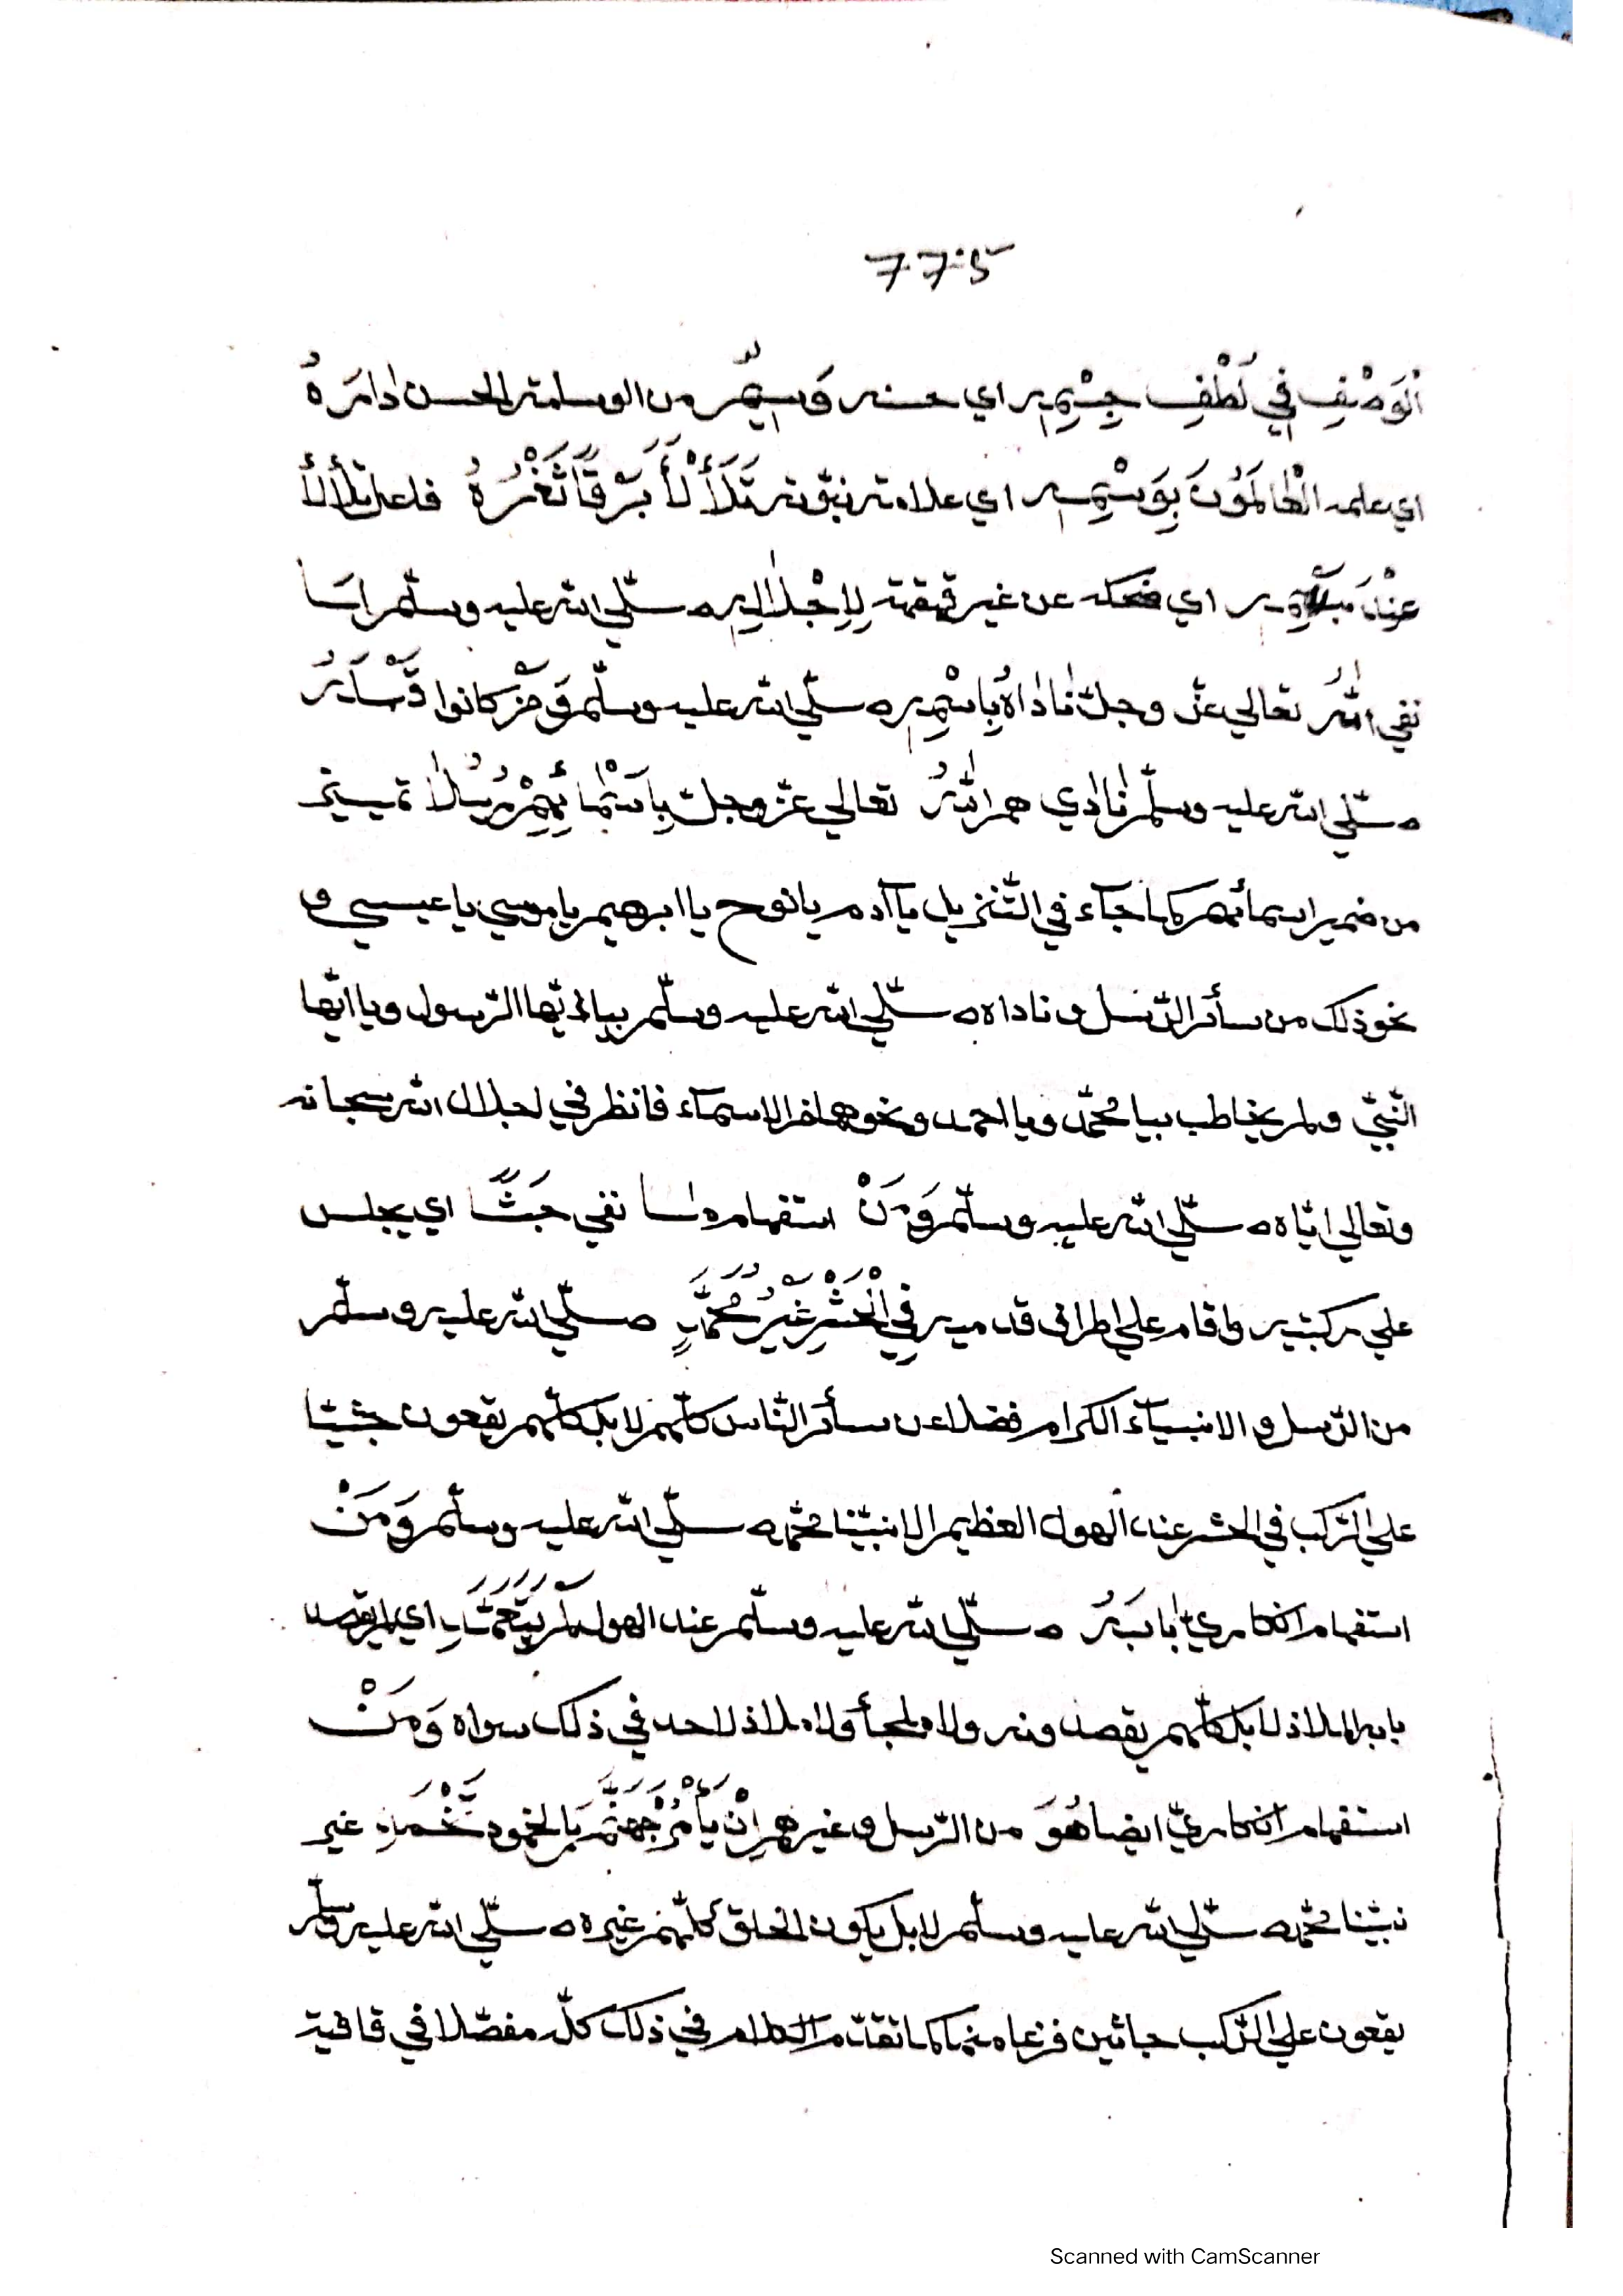 الْوَصْفِ فِي لُطْفِ جِسْمِهِ اي حسنه وَسِيمٌ من الوسامة الحسن دامره
اي علمه الْعَالَمُونَ بِوَسْمِهِ اي علامة نبوّته تَلَأْلَأَ بَرْقًا ثَغْرُهُ فاعل تلألأ
عِنْدَ اي ضحكه عن غير قهقهة لِإِجْلَالِهِ صلّي الله عليه وسلّم
نفي اللهُ تعالي عزّ وجلّ نَادَاهُ بِاسْمِهِ صلّي الله عليه وسلّم وَ كانوا
صلّي الله عليه وسلّم نَادٰي هم اللهُ تعالي عزّ وجلّ بِاسْمَائِهِمْ رُسُلًا تمييز
من ضمير اسمائهم كما جآء في التّنزيل يآ آدم يا نوح يا ابرهيم يا موسي يا عيسي و
نحو ذلك من سأئر الرّسل و ناداه صلّي الله عليه وسلّم بيا ايّها الرّسول ويا ايّها
النّبيّ ولم يخاطب بيا محمّد ويا احمد ونحوهما من الاسمآء فانظر في اجلال الله سبحانه
وتعالي ايّاه صلّي الله عليه وسلّم وَمَنْ استفهام نفي جَثَّا اي يجلس
علي ركبتيه واقام علي اطراف قدميه فِي الْحَشْرِ غَيْرُ مُحَمَّدٍ صلّي الله عليه وسلّم
من الرّسل و الانبيآء الكرام فضلا عن سأئر النّاس كلّهم لا بل كلّهم يقعون جثيّا
علي الرّكب في الحشر عند الهول العظيم الا نبيّنا محمّد صلّي الله عليه وسلّم وَمَنْ
استفهام انكاريّ بَابَهُ صلّي الله عليه وسلّم عند الهول لَمْ يَتَعَمَّدِ اي لم يقصد
بابه الملاذ لا بل كلّهم يقصدونه ولا ملجأ ولا ملاذ لاحد في ذلك سواه وَمَنْ
استفهام انكاريّ ايضا هُوَ من الرّسل و غيرهم اِنْ يَأْمُرْ جَهَنَّمَ بالخمود تَخْمَدِ غير
نبيّنا محمّد صلّي الله عليه وسلّم لا بل يكون الخلق كلّهم غيره صلّي الله عليه وسلّم
يقعون علي الرّكب جاثين فزعا منها كما تقدّم الكلام في ذلك كلّه مفصّلا في قافية
Scanned with CamScanner